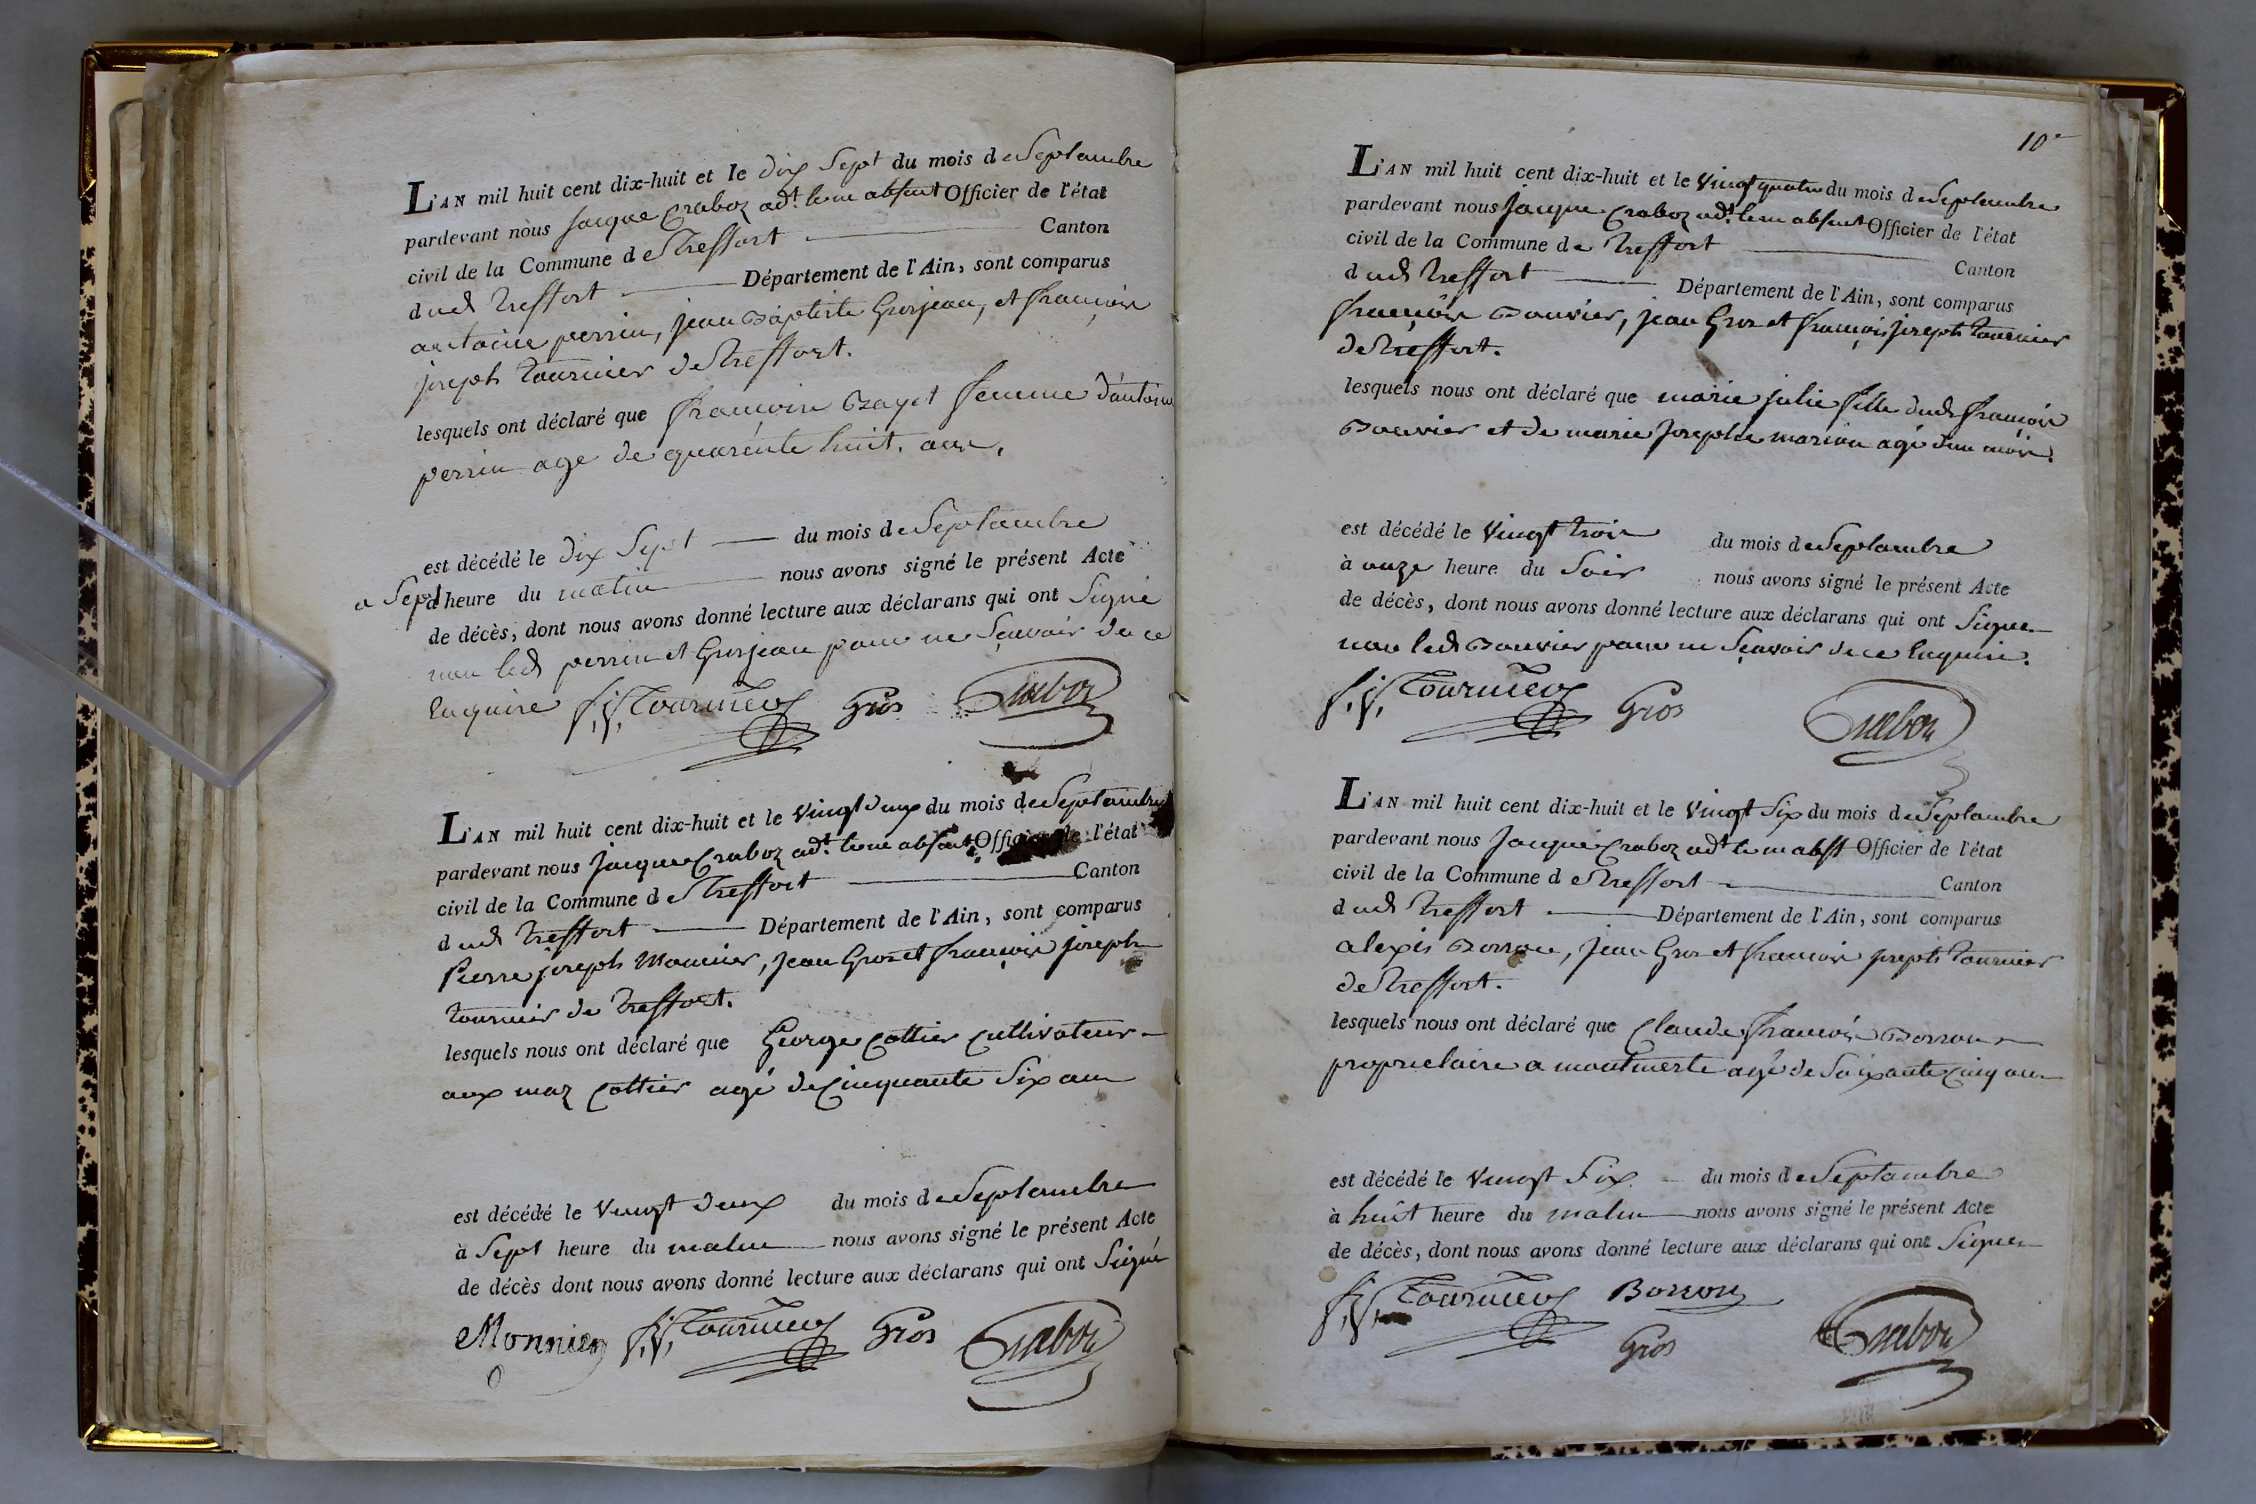 L'AN mil huit cent dix-huit et le dix Sept du mois de Septambre
pardevant nous jacque Craboz adt. le me absent Officier de l'état
civil de la Commune de Treffort Canton
dud Treffort Département de l'Ain, sont comparus
antoine perrin, jean Baptiste Grosjean, et françois
joseph tournier de Treffort.
lesquels ont déclaré que françoise Bayet femme d'antoine
perrin age de quarente huit. ans.
est décédé le dix Sept du mois de Septambre
a Sept à heure du matin nous avons signé le présent Acte
de décès, dont nous avons donné lecture aux déclarans qui ont Signé
non led perrin et Grosjean pour ne Sçavoir de ce
Enquire f. j. Tournier Gros Craboz
L'AN mil huit cent dix-huit et le vingt deux du mois de Septambre
pardevant nous jacque Craboz adt. le me absent Officier de l'état
civil de la Commune de Treffort Canton
dud Treffort Département de l'Ain, sont comparus
Pierre joseph Monnier, jean Gros et françois joseph
tournier de Treffort.
lesquels nous ont déclaré que George Cottier Cultivateur
aux maz Cottier agé de Cinquante Six ans
est décédé le vingt deux du mois de Septambre
à Sept heure du matin nous avons signé le présent Acte
de décès dont nous avons donné lecture aux déclarans qui ont Signé
Monnier f. j. Tournier Gros Craboz
10e
L'AN mil huit cent dix-huit et le vingt quatre du mois de Septambre
pardevant nous jacque Craboz adt. le me absent Officier de l'état
civil de la Commune de Treffort Canton
dud Treffort Département de l'Ain, sont comparus
françois Bouvier, jean Gros et françois joseph tournier
de Treffort.
lesquels nous ont déclaré que marie julie fille dud françois
Bouvier et de marie josephe marion agé d'un mois.
est décédé le vingt trois du mois de Septambre
à onze heure du Soir nous avons signé le présent Acte
de décès, dont nous avons donné lecture aux déclarans qui ont Signer
non led Bouvier pour ne Sçavoir de ce Enquire.
f. j. Tournier Gros Craboz
L'AN mil huit cent dix-huit et le vingt Six du mois de Septambre
pardevant nous jacque Craboz adt le m abst Officier de l'état
civil de la Commune de Treffort Canton
dud Treffort Département de l'Ain, sont comparus
alexis Borron, jean Gros et françois joseph tournier
de Treffort.
lesquels nous ont déclaré que Claude françois Borron
proprietaire a montmerle agé de Soixante Cinq ans
est décédé le vingt Six du mois de Septambre
à huit heure du matin nous avons signé le présent Acte
de décès, dont nous avons donné lecture aux déclarans qui ont Signer
f. j. Tournier Borron
Gros Craboz